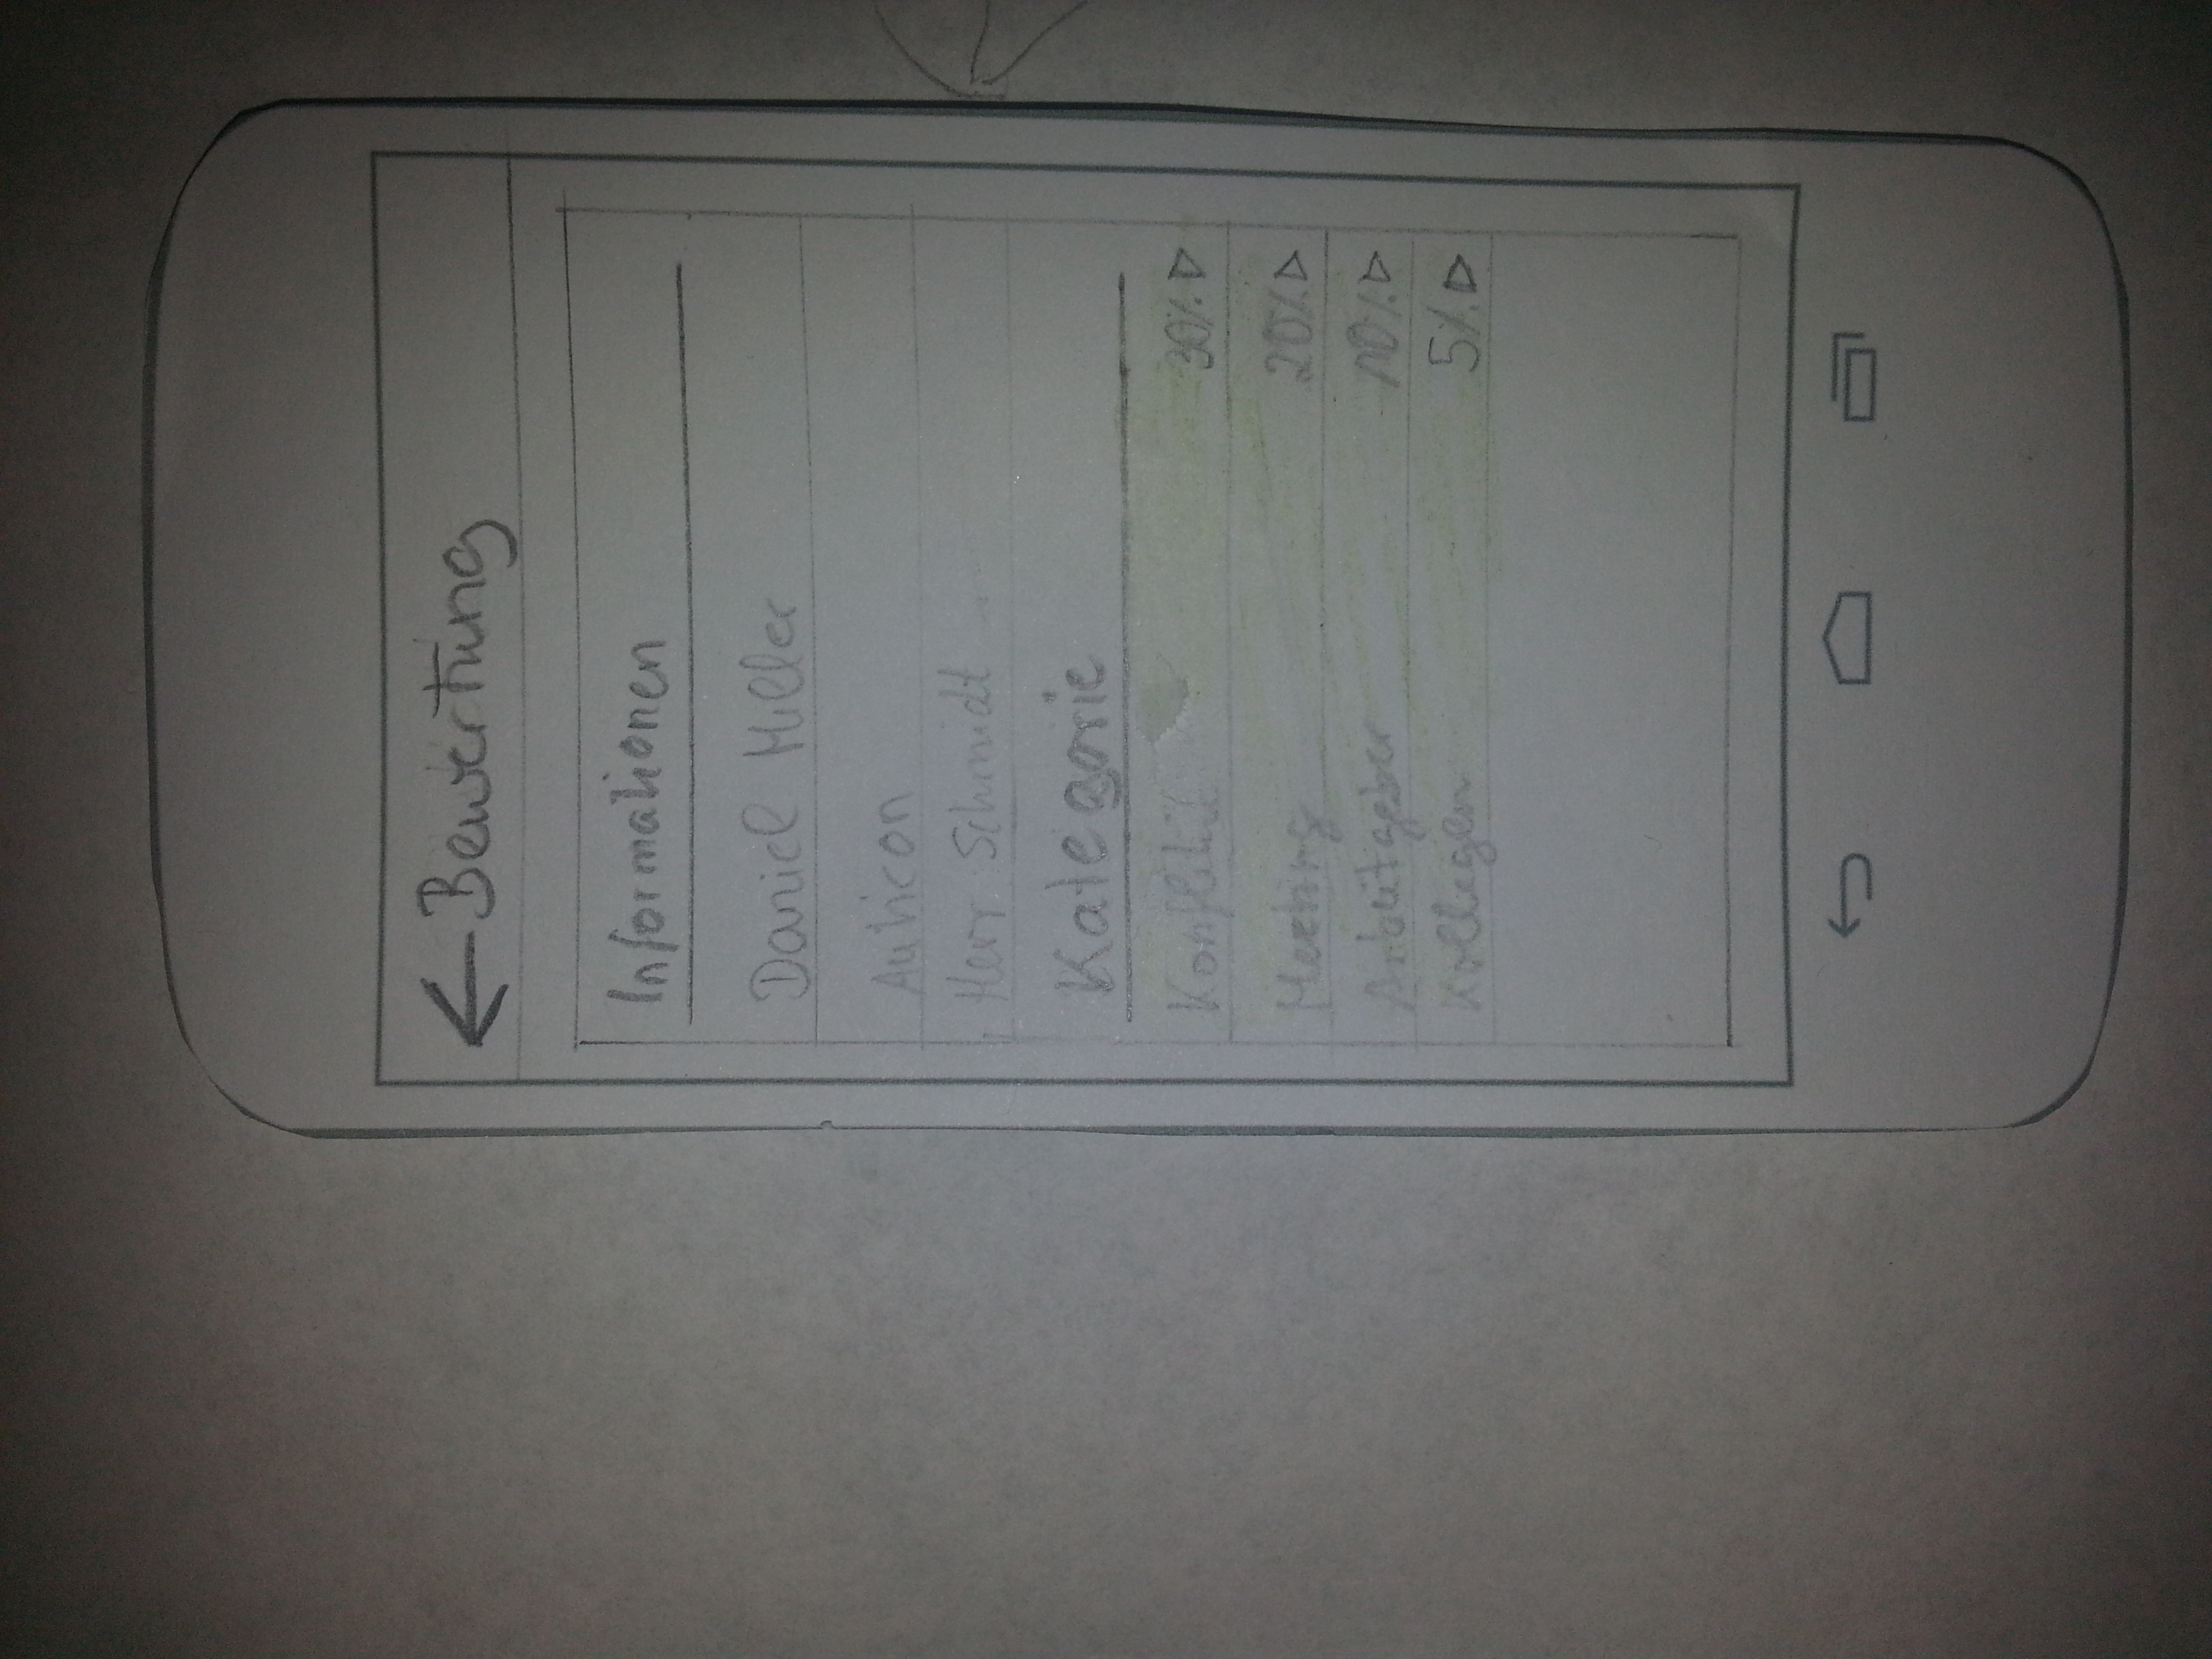 ← Bewertung
Informationen
Daniel Müller
Auticon
Herr Schmidt
Kategorie
Konflikte 30% ▷
Meeting 20% ▷
Arbeitgeber 10% ▷
Kollegen 5% ▷